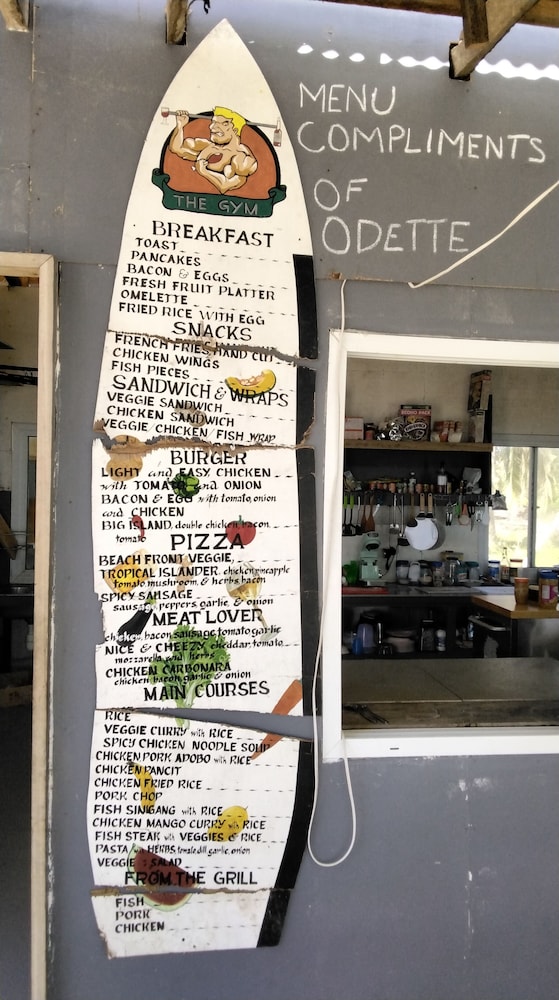 MENU
COMPLIMENTS
OF
ODETTE
THE GYM
BREAKFAST
TOAST
PANCAKES
BACON & EGGS
FRESH FRUIT PLATTER
OMELETTE
FRIED RICE WITH EGG
SNACKS
FRENCH FRIES, HAND CUT
CHICKEN WINGS
FISH PIECES
SANDWICH & WRAPS
VEGGIE SANDWICH
CHICKEN SANDWICH
VEGGIE/CHICKEN/FISH WRAP
BURGER
LIGHT and EASY CHICKEN
with TOMATO and ONION
BACON & EGG with tomato, onion
and CHICKEN
BIG ISLAND, double chicken, bacon,
tomato
PIZZA
BEACH FRONT VEGGIE,
TROPICAL ISLANDER, chicken, pineapple
tomato, mushroom, & herbs, bacon
SPICY SAUSAGE
sausage, peppers, garlic, & onion
MEAT LOVER
chicken, bacon, sausage, tomato, garlic
NICE & CHEEZY, cheddar, tomato,
mozzarella and herbs
CHICKEN CARBONARA
chicken, bacon, garlic & onion
MAIN COURSES
RICE
VEGGIE CURRY with RICE
SPICY CHICKEN NOODLE SOUP
CHICKEN/PORK ADOBO with RICE
CHICKEN PANCIT
CHICKEN FRIED RICE
PORK CHOP
FISH SINIGANG with RICE
CHICKEN MANGO CURRY with RICE
FISH STEAK with VEGGIES & RICE
PASTA with HERBS, tomato, dill, garlic, onion
VEGGIE SALAD
FROM THE GRILL
FISH
PORK
CHICKEN